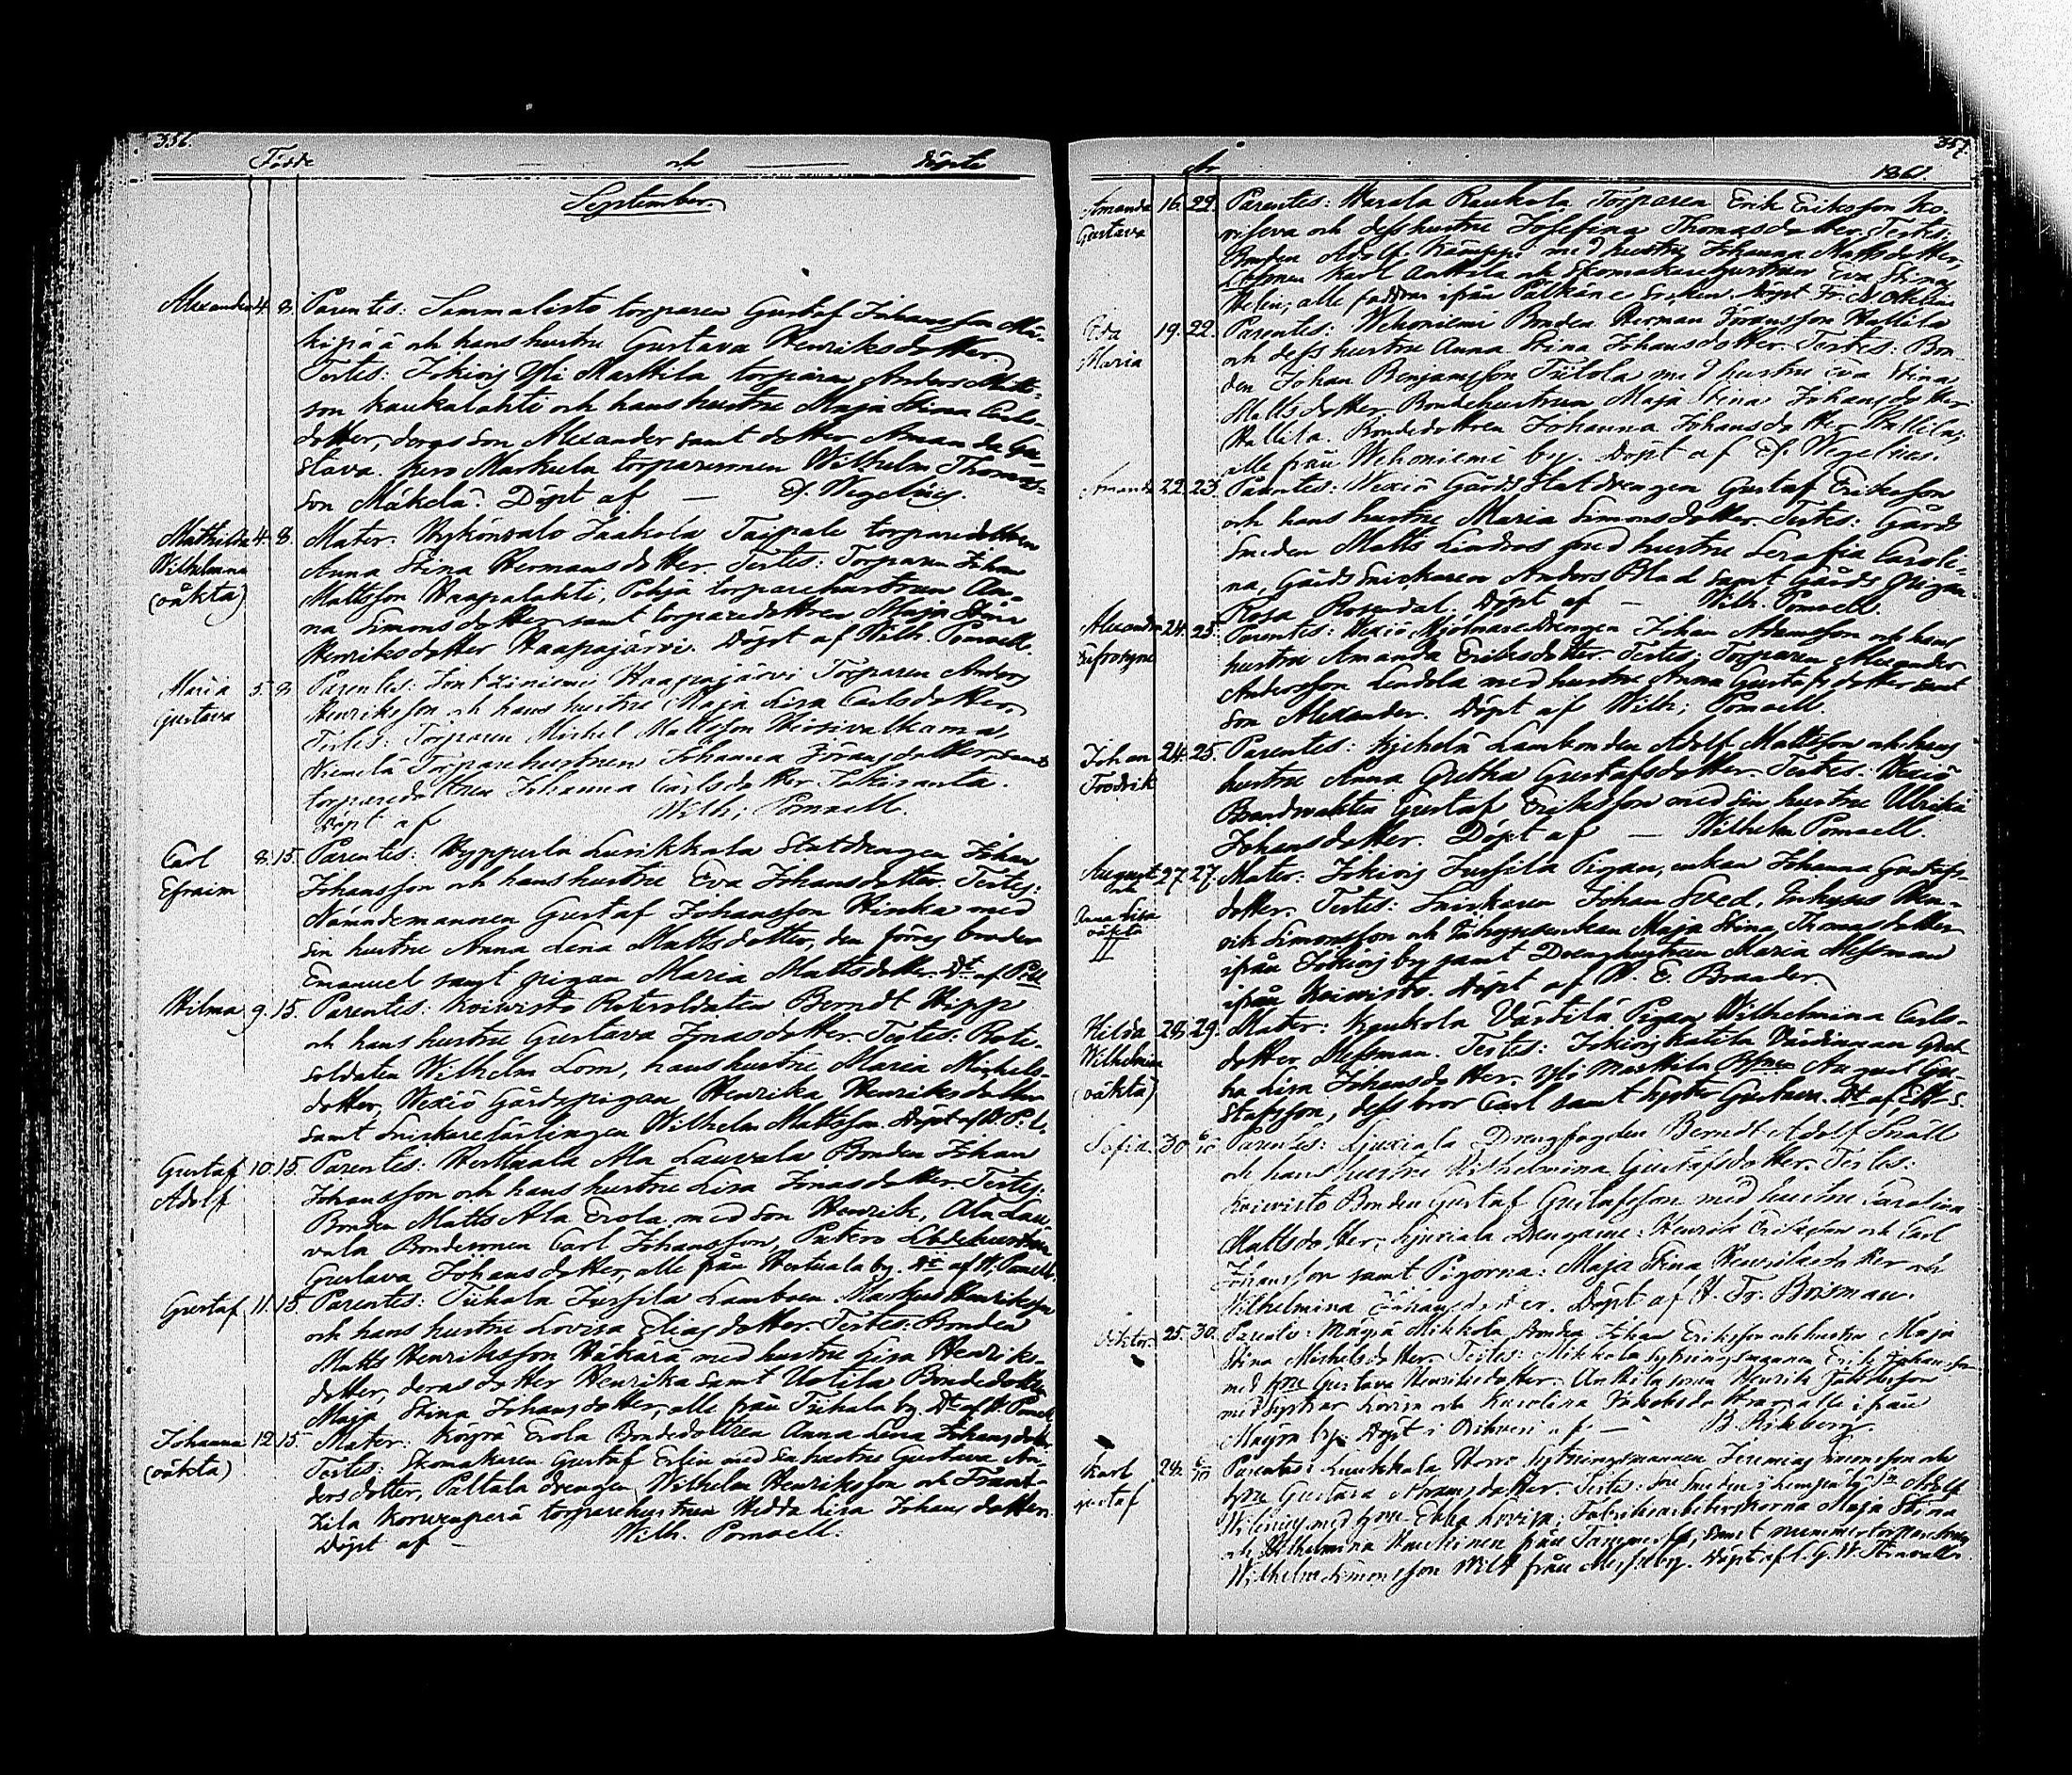 336.
Födde och döpte
September
Alexander 4. 8. Parentes: Sammalisto torparen Gustaf Johansson Mä-
kipää och hans hustru Gustava Henriksdotter
Testes: Jokiois Yli Marttila torparen Anders Matts-
son Kaukalahti och hans hustru Maja Stina Carls-
dotter, deras son Alexander samt dotter Amanda Gu-
stava. Markula torparesonen Wilhelm Thomas-
son Mäkelä. Döpt af — Ef. Wegelius.
Mathilda 4. 8. Mater: Jaakola Taipale torparedottren
Wilhelmina Anna Stina Hermansdotter. Testes: Torparen Johan
(oäkta) Mattsson Haapalahti, Pohja torparehustrun An-
na Simonsdotter samt torparedottren Maja Stina
Henriksdotter Haapajärvi. Döpt af Wilh. Pomoell.
Maria 5. 8. Parentes: Haapajärvi Torparen Anders
Gustava Henriksson och hans hustru Maja Lisa Carlsdotter
Testes: Torparen Michel Mattsson Hirsivalkama,
Niemelä Torparehustrun Johanna Jöransdotter samt
torparedottren Johanna Carlsdotter
Döpt af Wilh: Pomoell.
Carl 8. 15. Parentes: Lurikkala Statdrengen Johan
Efraim Johansson och hans hustru Eva Johansdotter. Testes:
Nämndemannen Gustaf Johansson Hinka med
sin hustru Anna Lena Mattsdotter, den förres broder
Emanuel samt pigan Maria Mattsdotter. Dt af
Hilma 9. 15. Parentes: Koivisto Rotesoldaten Berndt Hipp
och hans hustru Gustava Jonasdotter. Testes: Rote-
soldaten Wilhelm Lom, hans hustru Maria Michels-
dotter, Wexiö Gårdspigan Henrika Henriksdotter
samt Snickarelärlingen Wilhelm Mattsson. Döpt af
Gustaf 10. 15. Parentes: Herttuala Ala Lauvala Bonden Johan
Adolf Johansson och hans hustru Lisa Jonasdotter. Testes:
Bonden Matts Ala Erola med son Henrik, Ala Lau-
vala Bondesonen Carl Johansson,
Gustava Johansdotter, alle från Hertuala by. Dt af W. Pomoell.
Gustaf 11. 15. Parentes: Tiihala Jussila Lambonden Markus Henriksson
och hans hustru Lovisa Eliasdotter. Testes: Bonden
Matts Henriksson Häkärä med hustru Lisa Henriks-
dotter, deras dotter Henrika samt Uotila Bondedottren
Maja Stina Johansdotter, alle från Tiihala by. Dt af W. Pomoell
Johanna 12. 15. Mater: Erola Bondedottren Anna Lena Johansdotter
(oäkta) Testes: Skomakaren Gustaf Erlin med sin hustru Gustava An-
dersdotter, Pältala drengen Wilhelm Henriksson och
torparehustrun Hedda Lisa Johansdotter.
Döpt af — Wilh. Pomoell.
337.
År 1861
Amanda 16. 22. Parentes: Haukola Torparen Erik Eriksson Ko-
Gustava och dess hustru Josefina Thomasdotter. Testes:
Adolf Kämppi med hustru Johanna Mattsdotter,
Karl Anttila och Skomakarehustrun Eva Stina
alle faddrar ifrån Pälkäne Socken. Döpt
Ida 19. 22. Parentes: Wehoniemi Bonden Herman Jöransson Hallila
Maria och dess hustru Anna Stina Johansdotter. Testes: Bon-
den Johan Benjamsson Tiitola med hustru Eva Stina
Mattsdotter. Bondehustrun Maja Stina Johansdotter
Hallila. Bondedottren Johanna Johansdotter Hallila,
alle från Wehoniemi by. Döpt af Ef. Wegelius.
Amanda 22. 23. Parentes: Wexiö Gårds Statdrengen Gustaf Eriksson
och hans hustru Maria Simonsdotter. Testes: Gårds
Smeden Matts Lindros med hustru Serafia Caroli-
na, Gårds Snickaren Anders Blad samt Gårds Pigan
Rosa Rosendal. Döpt af — Wilh. Pomoell
Alexandra 24. 25. Parentes: Wexiö Mjölnaredrengen Johan Adamsson och hans
Eufrosyne hustru Amanda Eriksdotter. Testes: Torparen Alexander
Andersson Lindola med hustru Anna Gustafsdotter samt
son Alexander. Döpt af Wilh: Pomoell.
Johan 24. 25. Parentes: Lambonden Adolf Mattsson och hans
Fredrik hustru Anna Gretha Gustafsdotter. Testes: Wexiö
Brandvakten Gustaf Eriksson med sin hustru Ulrika
Johansdotter. Döpt af — Wilhelm Pomoell.
August 27. 27. Mater: Jokiois Jussila Pigan, enkan Johanna Gustafs-
och dotter. Testes: Snickaren Johan Sved, Inhyses Hen-
Anna Lisa rik Simonsson och Inhysesenkan Maja Stina Thomasdotter
oäkta ifrån Jokiois by samt Drenghustrun Maria Messman
II ifrån Koivisto. Döpt af W. E. Brander.
Hilda 28. 29. Mater: Keukola Värtilä Pigan Wilhelmina Carls-
Wilhelmina dotter Messman. Testes: Jokiois Katila Värdinnan
(oäkta) Lisa Johansdotter. Yli Marttila August Gu-
stafsson, dess bror Carl samt syster Gustava. Dt af
Sofia 30. 6/10 Parentes: Liuxiala Drengfogden Berndt Adolf Snäll
och hans hustru Wilhelmina Gustafsdotter. Testes:
Koivisto Bonden Gustaf Gustafsson med hustru Carolina
Mattsdotter, Liuxiala Drengarne: Henrik Eriksson och Carl
Johansson samt Pigorna: Maja Stina Henriksdotter och
Wilhelmina Johansdotter. Döpt af
Viktor. 25. 30. Parentes: Mäyrä Mikkola Bonden Johan Eriksson och hustru Maja
Stina Michelsdotter. Testes: Mikkola Sytningsmannen Erik Johansson
med hru Gustava Henriksdotter, Anttila sonen Henrik
med systrar Lovisa och Karolina alle ifrån
Mäyrä by. Döpt i Orihvesi af —
Karl 28. 6/10 Parentes: Luukkala Sytningsmannen Jeremias Simonsson och
Gustaf hru Gustava Abramsdotter. Testes: Adolf
med hru Ebba Lovisa; Fabriksarbeterskorna Maja Stina
och Wilhelmina från Tammerfors, samt
Wilhelm Simonsson från by. Döpt af